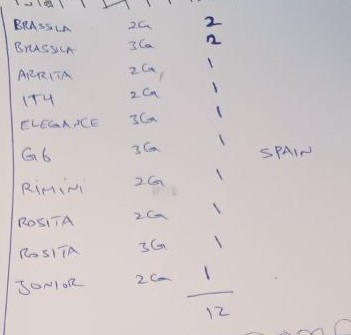 BRASSICA 2G 2
BRASSICA 3G 2
ARRITA 2G 1
1T4 2G 1
ELEGANCE 3G 1
G6 3G 1 SPAIN
RIMINI 2G 1
ROSITA 2G 1
ROSITA 3G 1
JONIOR 2G 1
12